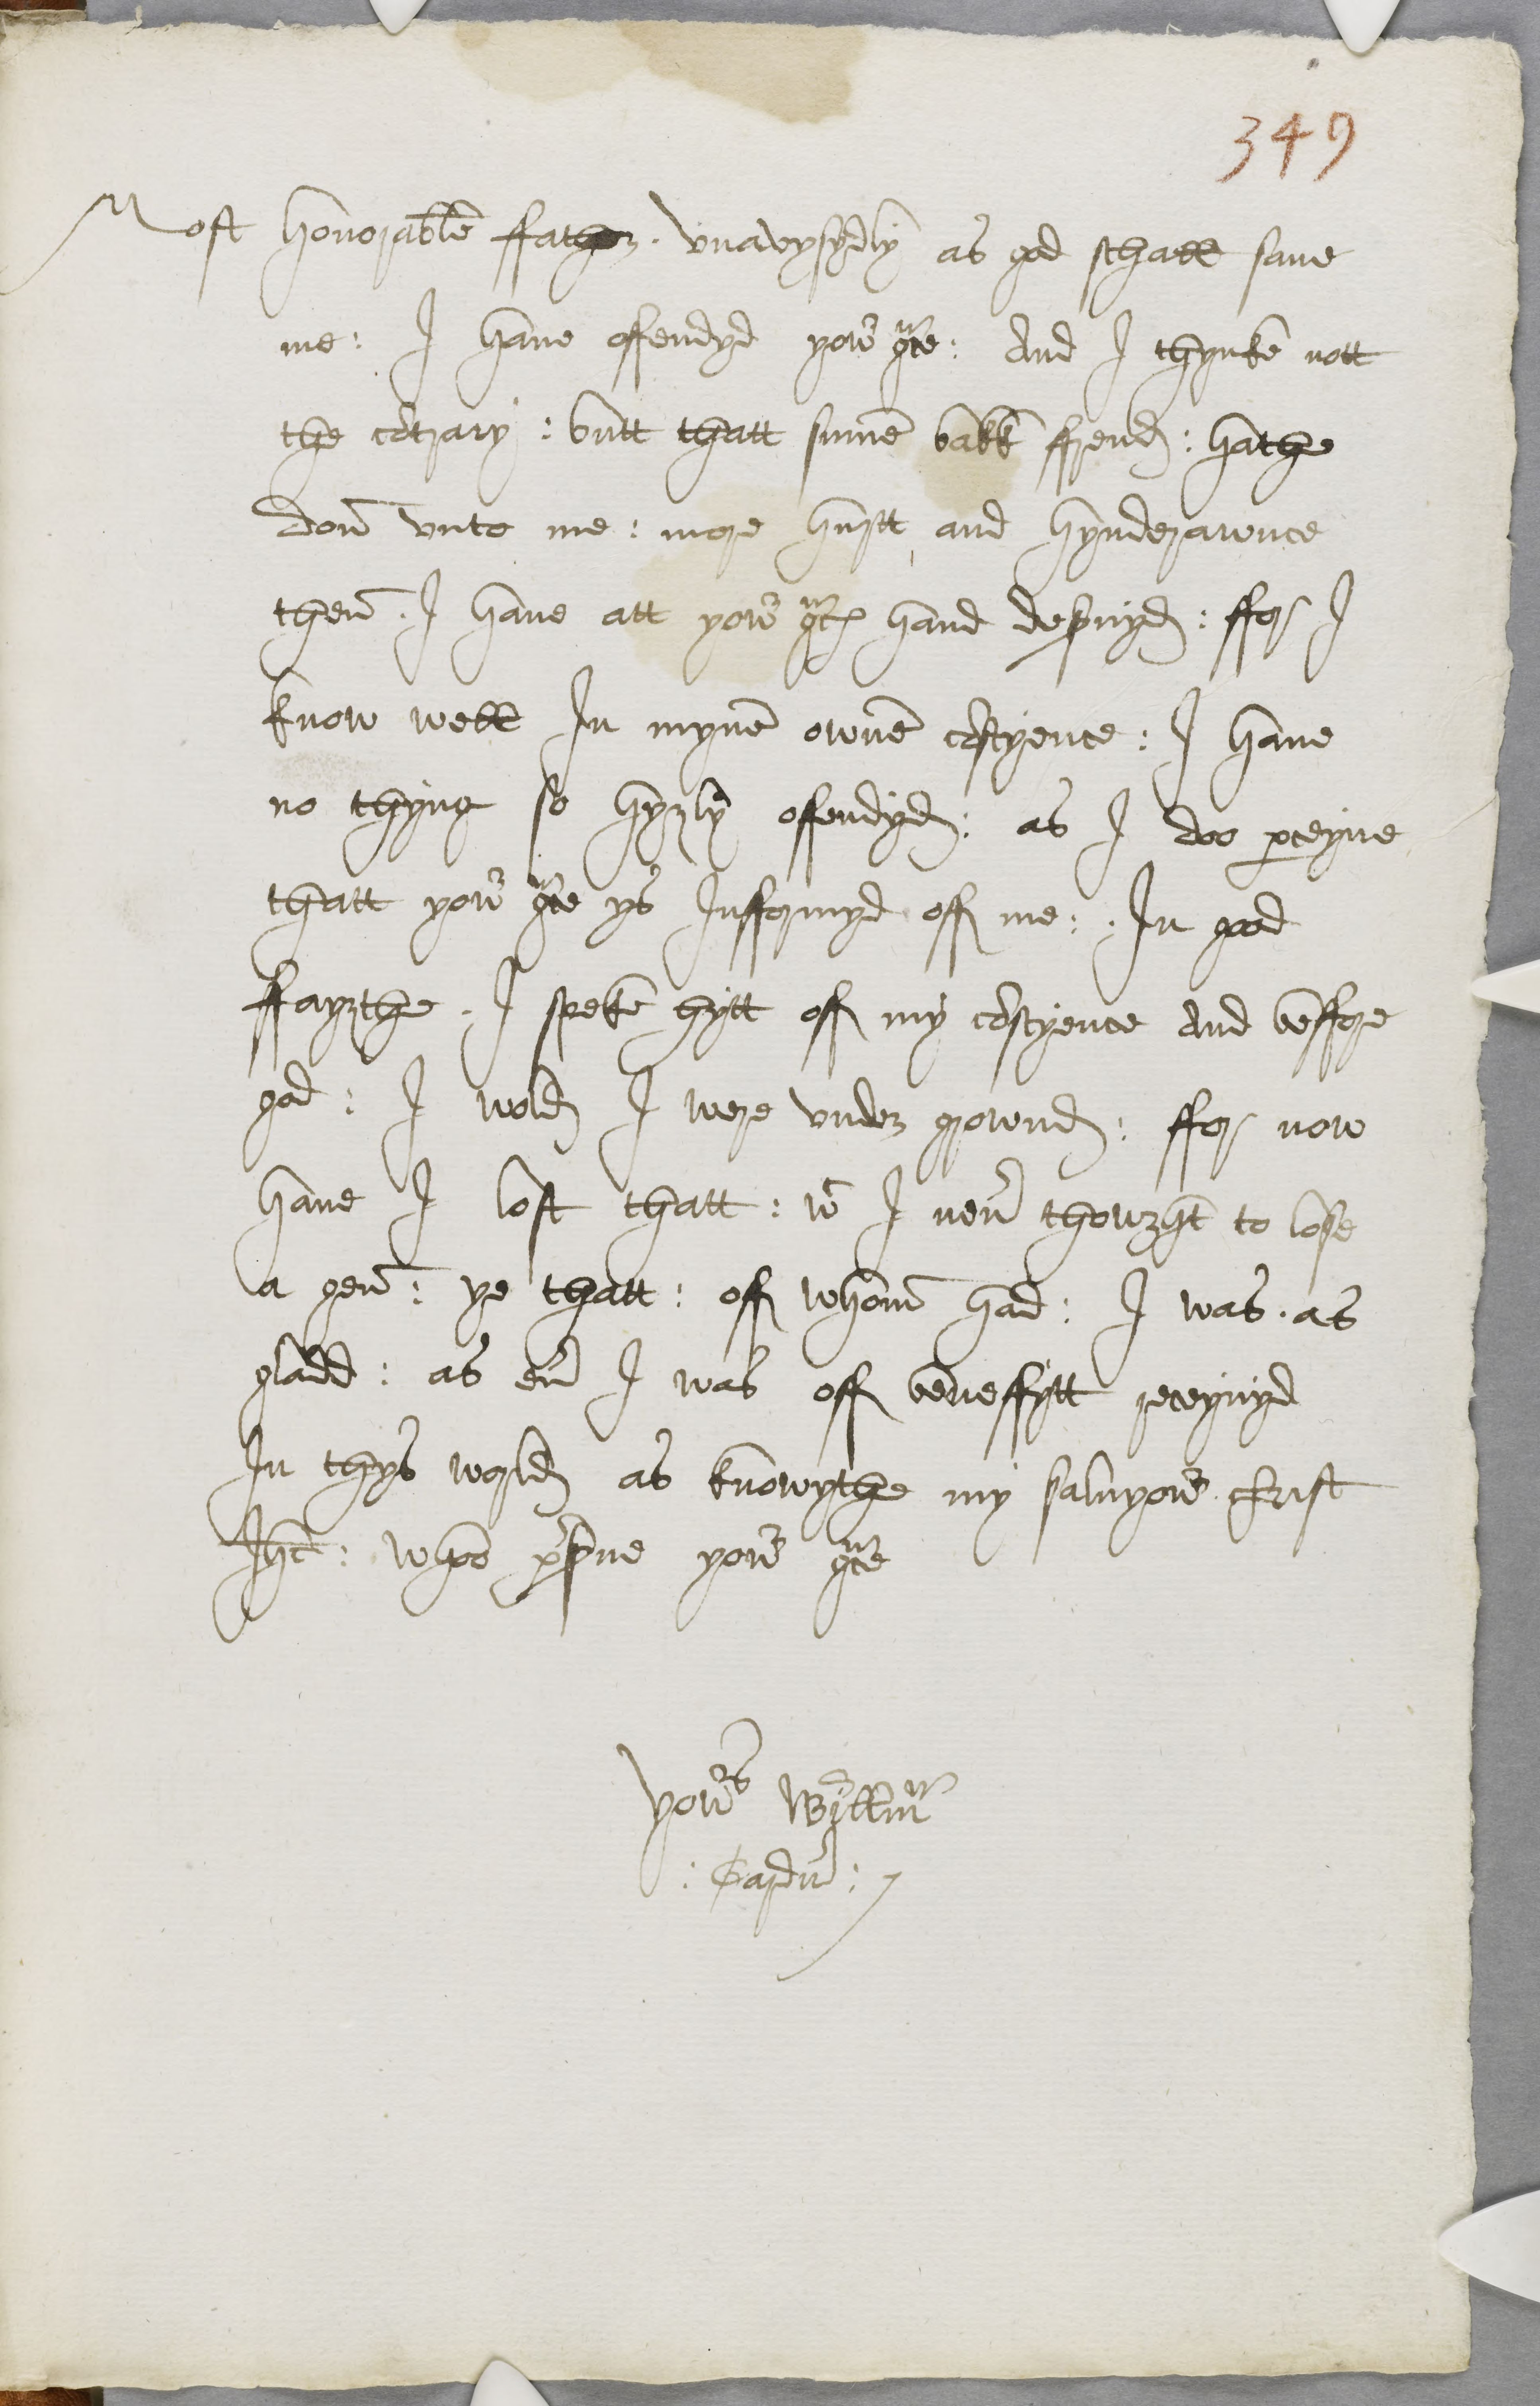 349
Most honorable ffather. vnavysydly as god schall saue
me: I haue offendyd yowr grace: And I thynke nott
the cõtrary: butt thatt sume bakk ffrend: hathe
don vnto me: more hurtt and hynderawnce
then. I haue att yowr grac hand deseruyd: ffor I
know well In myne owne cõscyence: I haue
no thyng so hyzly offendyd: as I doo perceyue
thatt yowr grace ys Infformyd off me: . In good
ffayzthe. I speke hytt off my cõscyence And beffore
god: I wold I were vnder grownd: ffor now
haue I lost thatt: wc I neuer thowzht to lose
a gen: ye thatt: off whom had: I was. as
gladd: as euer I was off beneffytt receyuyd
In thys world as knowythe my saluyowr christ
Ihc: who preserue yowr grace
yowrs Wyllm
: Cardu :